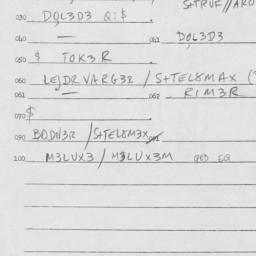 S+TRUF//ARO
030 DOL3D3 Q:$
040 — 041 DOL3D3
050 $ TOK3R
060 LEJDR VARG32 / S+TEL8MAX (
061 — 062 RIM3R
070 $
090 BODN3R / S+TEL8M3X
100 M3LUX3 / M3LUX3M QED EQ